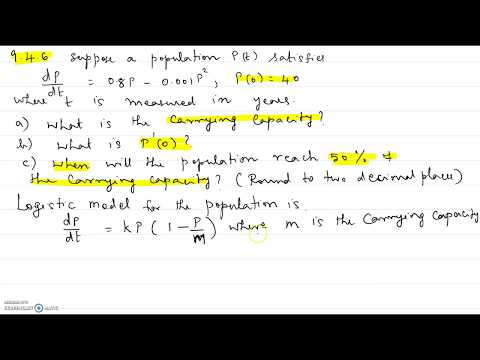 9.4.6 Suppose a population P(t) satisfies
dP/dt = 0.8P - 0.001P², P(0) = 40
where t is measured in years.
a) what is the Carrying Capacity?
b) what is P'(0)?
c) when will the population reach 50% of
the Carrying capacity? (Round to two decimal place)
Logistic model for the population is
dP/dt = kP (1 - P/m) where m is the Carrying Capacity